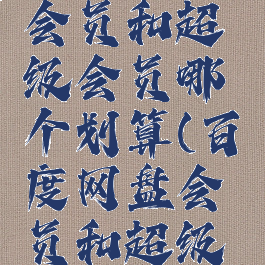 会员和超
级会员哪
个划算(百
度网盘会
员和超级